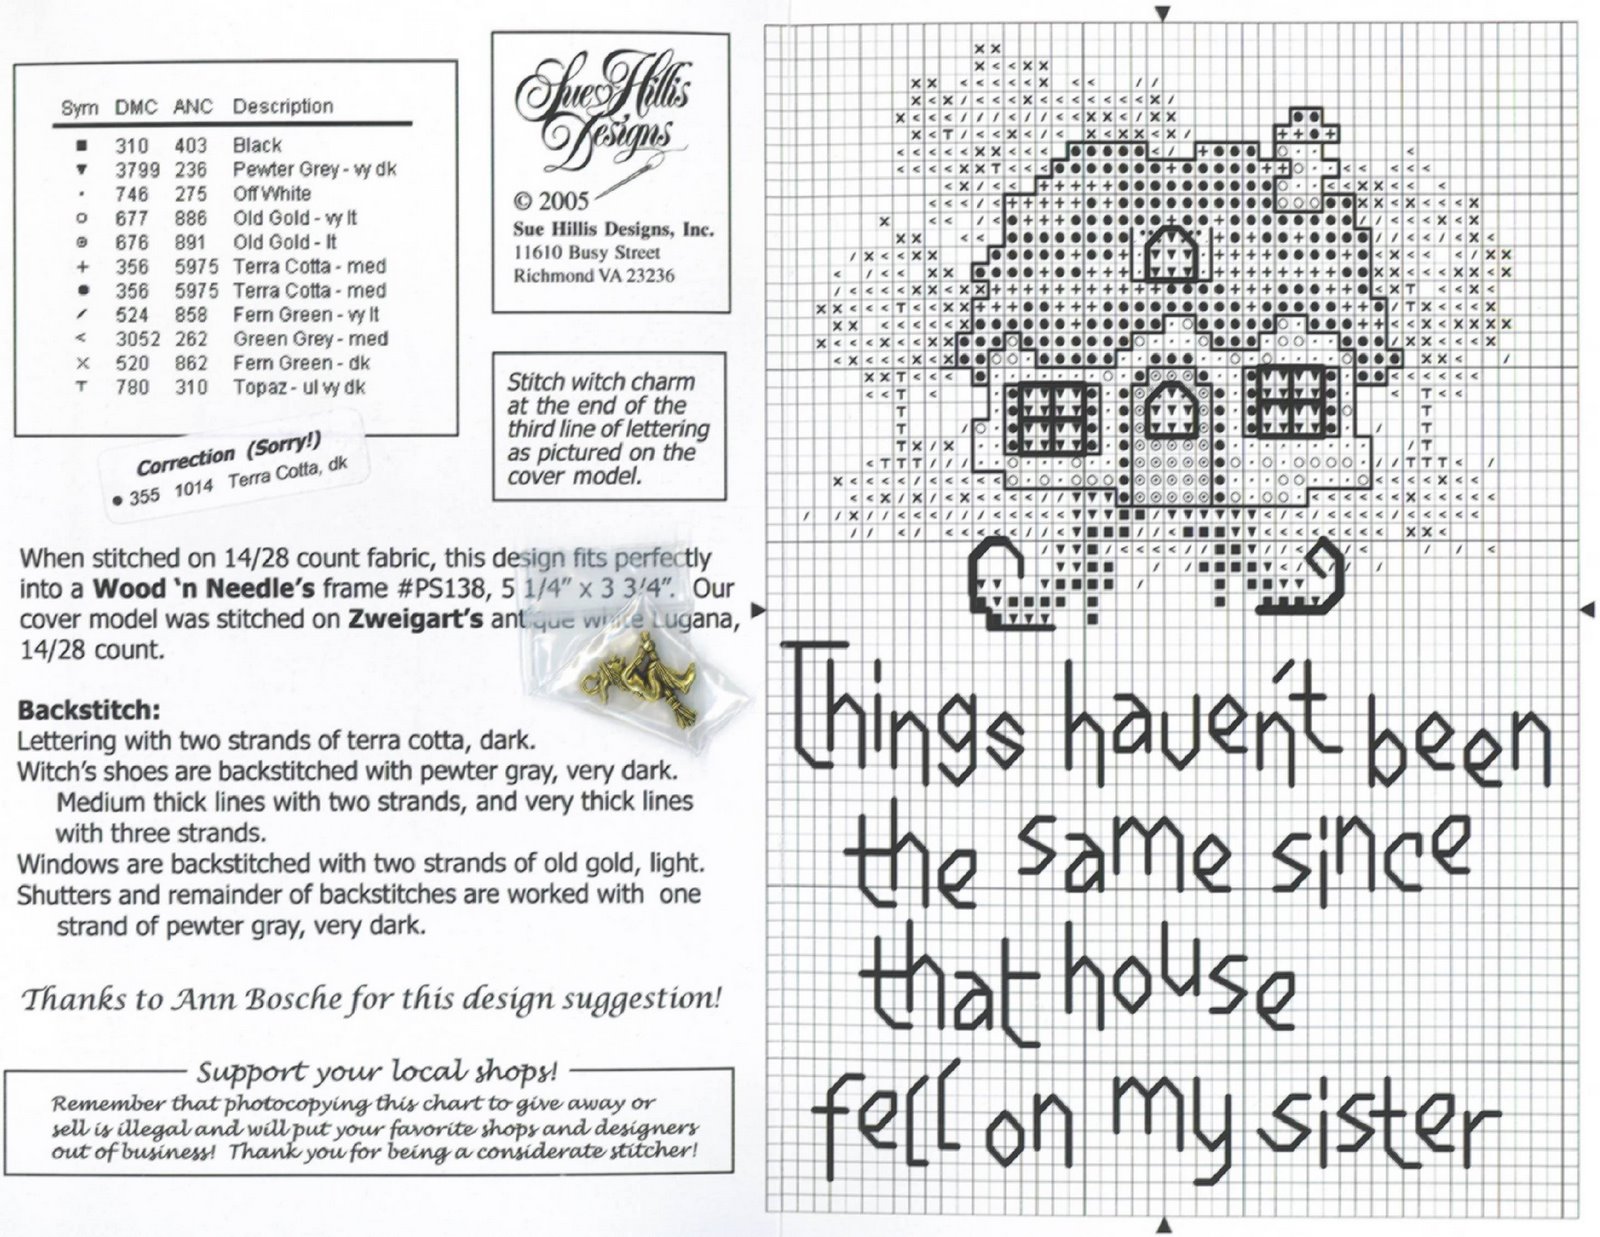 Sym DMC ANC Description
■ 310 403 Black
▼ 3799 236 Pewter Grey - vy dk
· 746 275 Off White
○ 677 886 Old Gold - vy lt
⊙ 676 891 Old Gold - lt
+ 356 5975 Terra Cotta - med
● 356 5975 Terra Cotta - med
/ 524 858 Fern Green - vy lt
< 3052 262 Green Grey - med
X 520 862 Fern Green - dk
T 780 310 Topaz - ul vy dk
Correction (Sorry!)
● 355 1014 Terra Cotta, dk
Sue Hillis
Designs
© 2005
Sue Hillis Designs, Inc.
11610 Busy Street
Richmond VA 23236
Stitch witch charm
at the end of the
third line of lettering
as pictured on the
cover model.
When stitched on 14/28 count fabric, this design fits perfectly
into a Wood 'n Needle's frame #PS138, 5 1/4" x 3 3/4". Our
cover model was stitched on Zweigart's antique white Lugana,
14/28 count.
Backstitch:
Lettering with two strands of terra cotta, dark.
Witch's shoes are backstitched with pewter gray, very dark.
Medium thick lines with two strands, and very thick lines
with three strands.
Windows are backstitched with two strands of old gold, light.
Shutters and remainder of backstitches are worked with one
strand of pewter gray, very dark.
Thanks to Ann Bosche for this design suggestion!
Support your local shops!
Remember that photocopying this chart to give away or
sell is illegal and will put your favorite shops and designers
out of business! Thank you for being a considerate stitcher!
Things haven't been
the same since
that house
fell on my sister